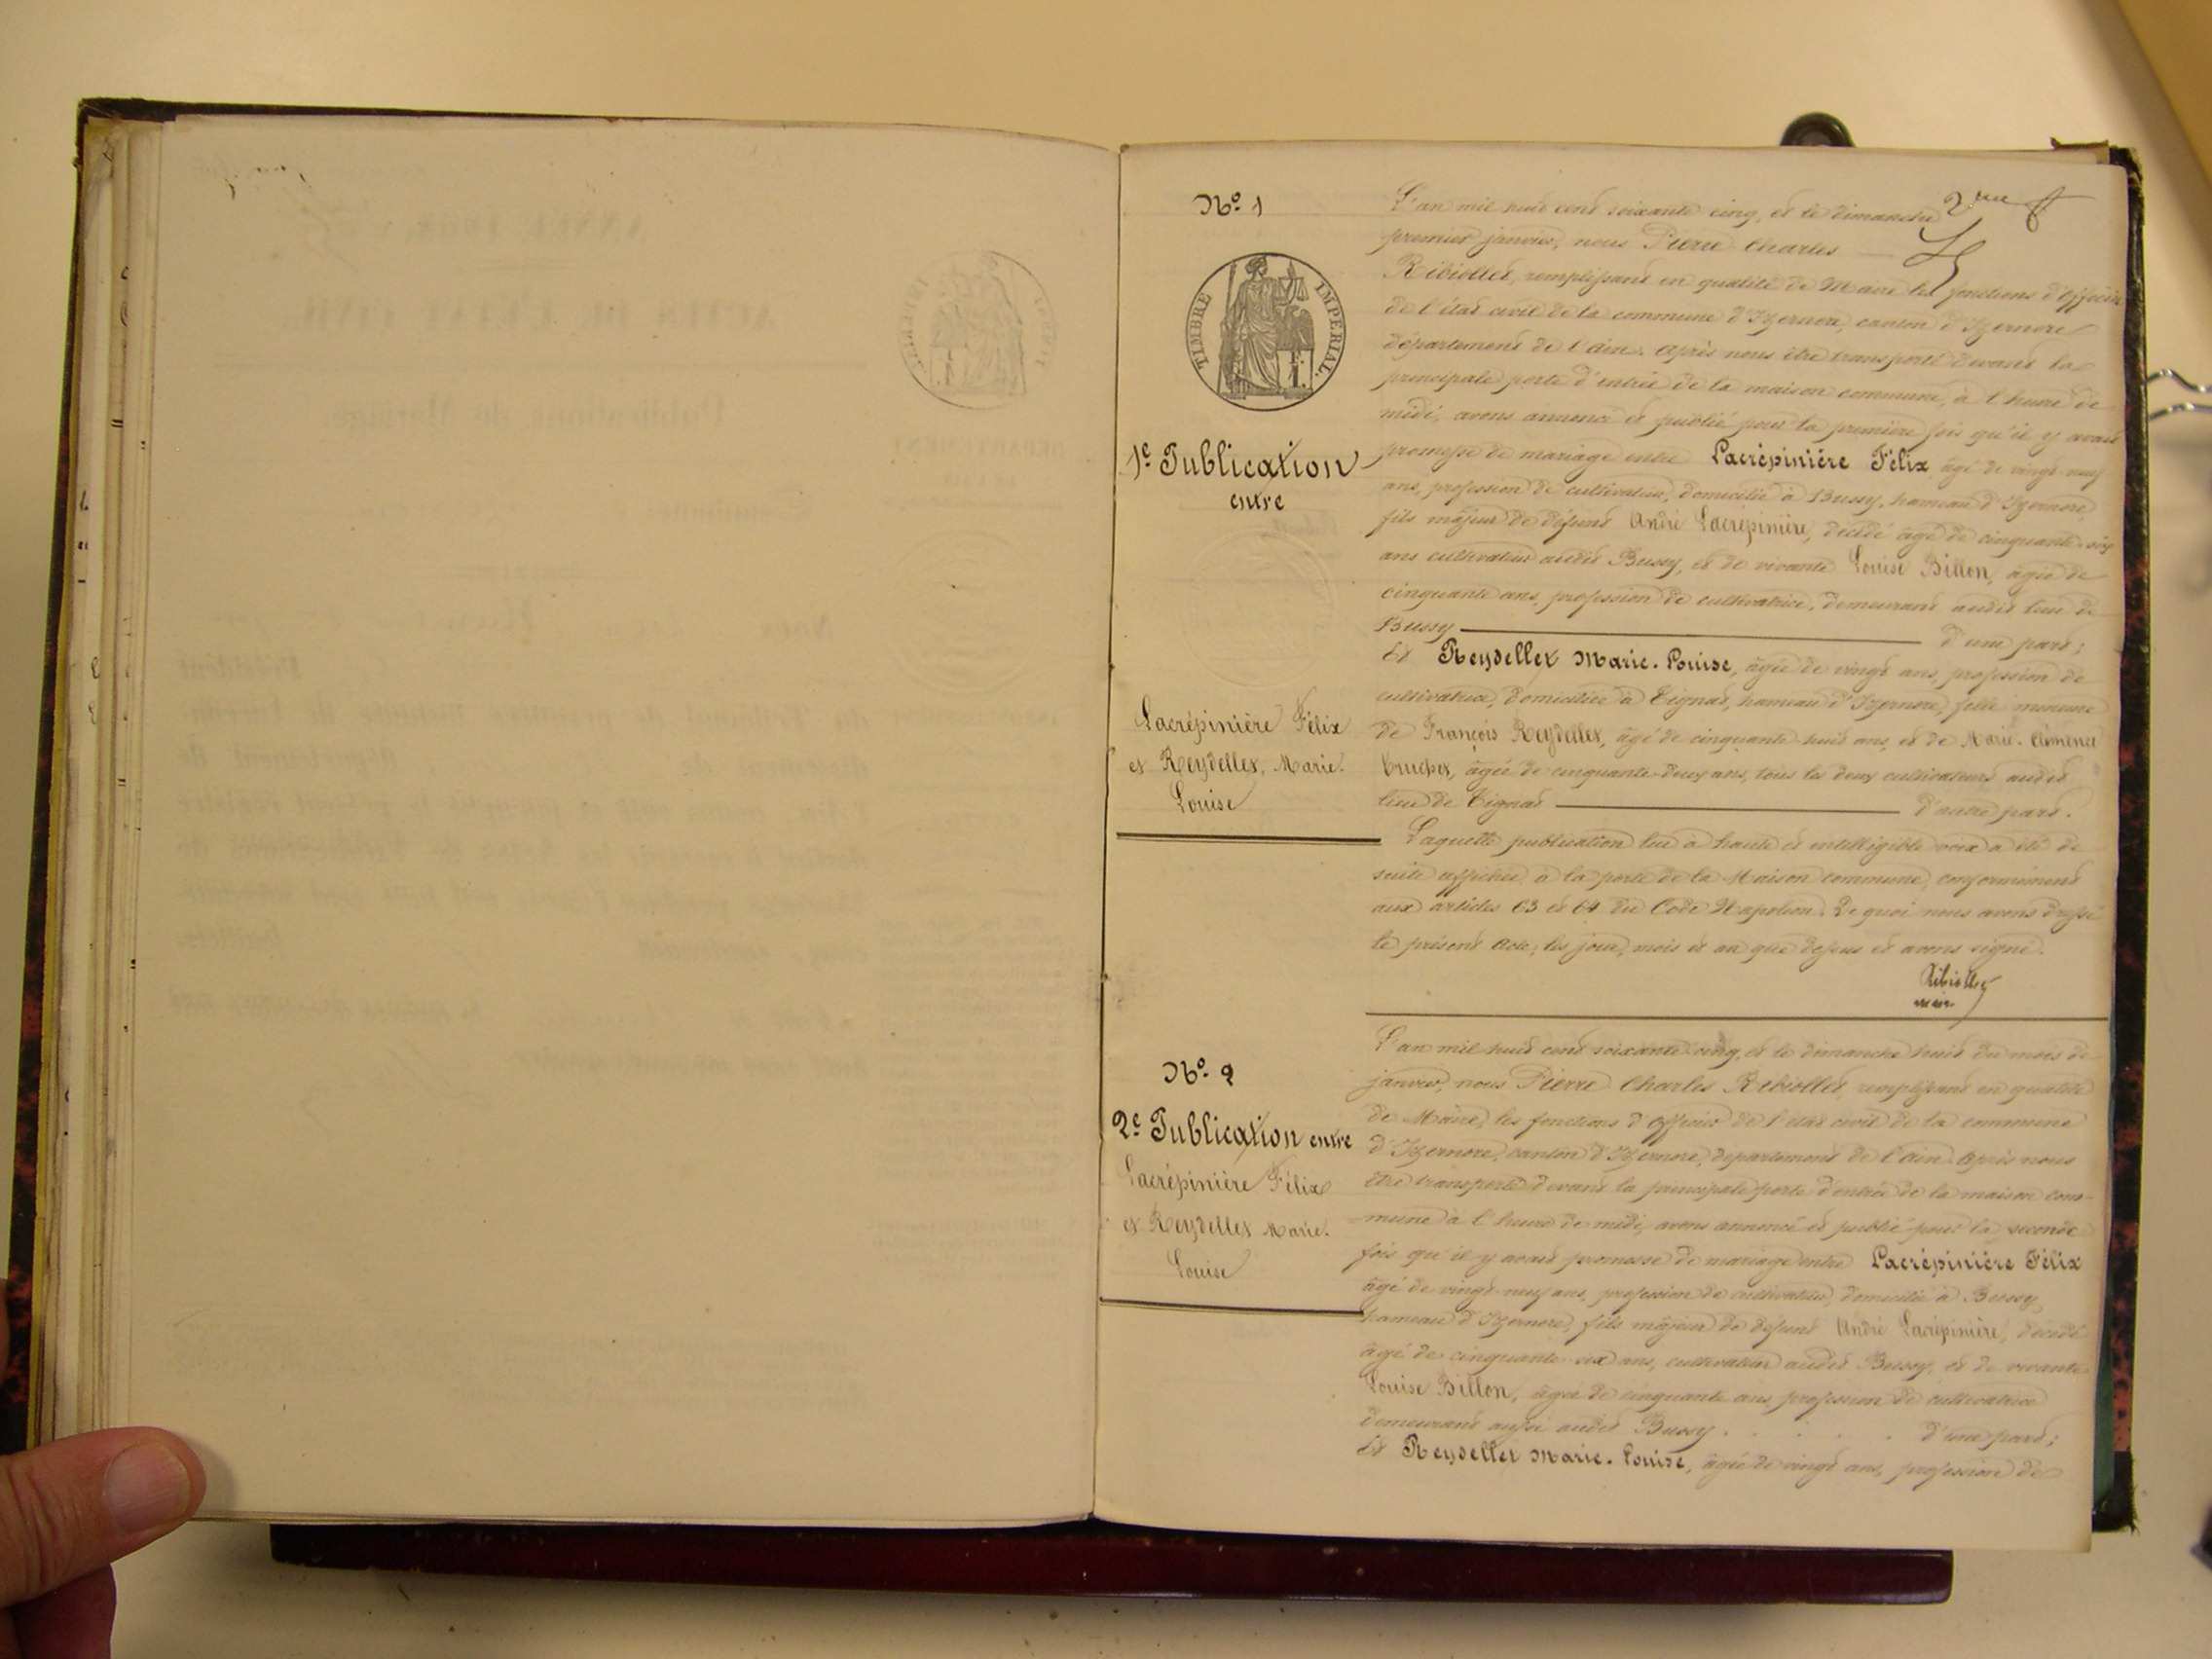 2me ff
No. 1
TIMBRE IMPERIAL.
1 F.
1e Publication
entre
Lacrépinière Félix
et Reydellet, Marie.
Louise
L'an mil huit cent soixante cinq, et le dimanche
premier janvier, nous Pierre Charles
Ribiollet, remplissant en qualité de Maire les fonctions d'officier
de l'état civil de la commune d'Izernore, canton d'Izernore
département de l'ain. Après nous être transporté devant la
principale porte d'entrée de la maison commune, à l'heure de
midi, avons annoncé et publié pour la première fois qu'il y avait
promesse de mariage entre Lacrépinière Félix agé de vingt-neuf
ans, profession de cultivateur, domicilié à Bussy, hameau d'Izernore,
fils majeur de défunt André Lacrépinière, décédé âgé de cinquante-six
ans cultivateur audit Bussy, et de vivante Louise Billon, âgée de
cinquante ans, profession de cultivatrice, demeurant audit lieu de
Bussy d'une part;
Et Reydellet Marie. Louise, âgée de vingt ans, profession de
cultivatrice, domiciliée à Tignat, hameau d'Izernore, fille mineure
de François Reydellet, âgé de cinquante-huit ans, et de Marie.
âgée de cinquante-deux ans, tous les deux cultivateurs audit
lieu de Tignat d'autre part.
Laquelle publication lue à haute et intelligible voix a été de
suite affichée à la porte de la Maison commune, conformément
aux articles 63 et 64 du Code Napoléon. De quoi nous avons dressé
le présent acte, les jour, mois et an que dessus et avons signé.
Ribiollet
maire
No. 2
2e Publication entre
Lacrépinière Félix
et Reydellet Marie.
Louise
L'an mil huit cent soixante cinq, et le dimanche huit du mois de
janvier, nous Pierre Charles Ribiollet, remplissant en qualité
de Maire, les fonctions d'officier de l'état civil de la commune
d'Izernore, canton d'Izernore, département de l'ain. Après nous
être transporté devant la principale porte d'entrée de la maison com-
mune à l'heure de midi, avons annoncé et publié pour la seconde
fois qu'il y avait promesse de mariage entre Lacrépinière Félix
âgé de vingt-neuf ans, profession de cultivateur, domicilié à Bussy,
hameau d'Izernore, fils majeur de défunt André Lacrépinière, décédé
âgé de cinquante-six ans, cultivateur audit Bussy, et de vivante
Louise Billon, âgée de cinquante ans, profession de cultivatrice
demeurant aussi audit Bussy . . . . . d'une part;
Et Reydellet Marie. Louise, âgée de vingt ans, profession de